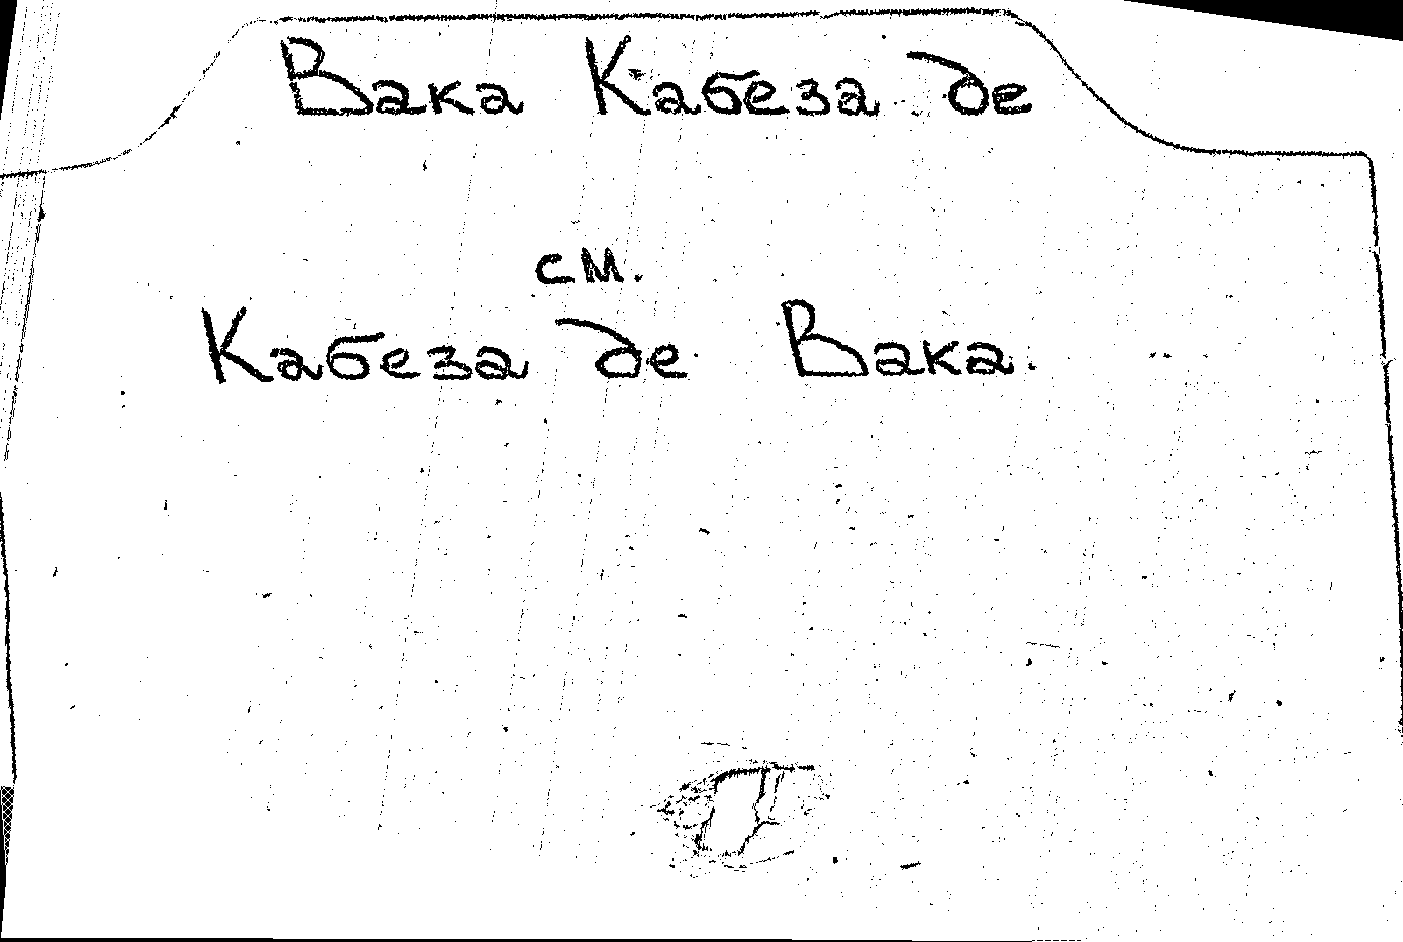 Вака Кабеза де
см.
Кабеза де Вака.